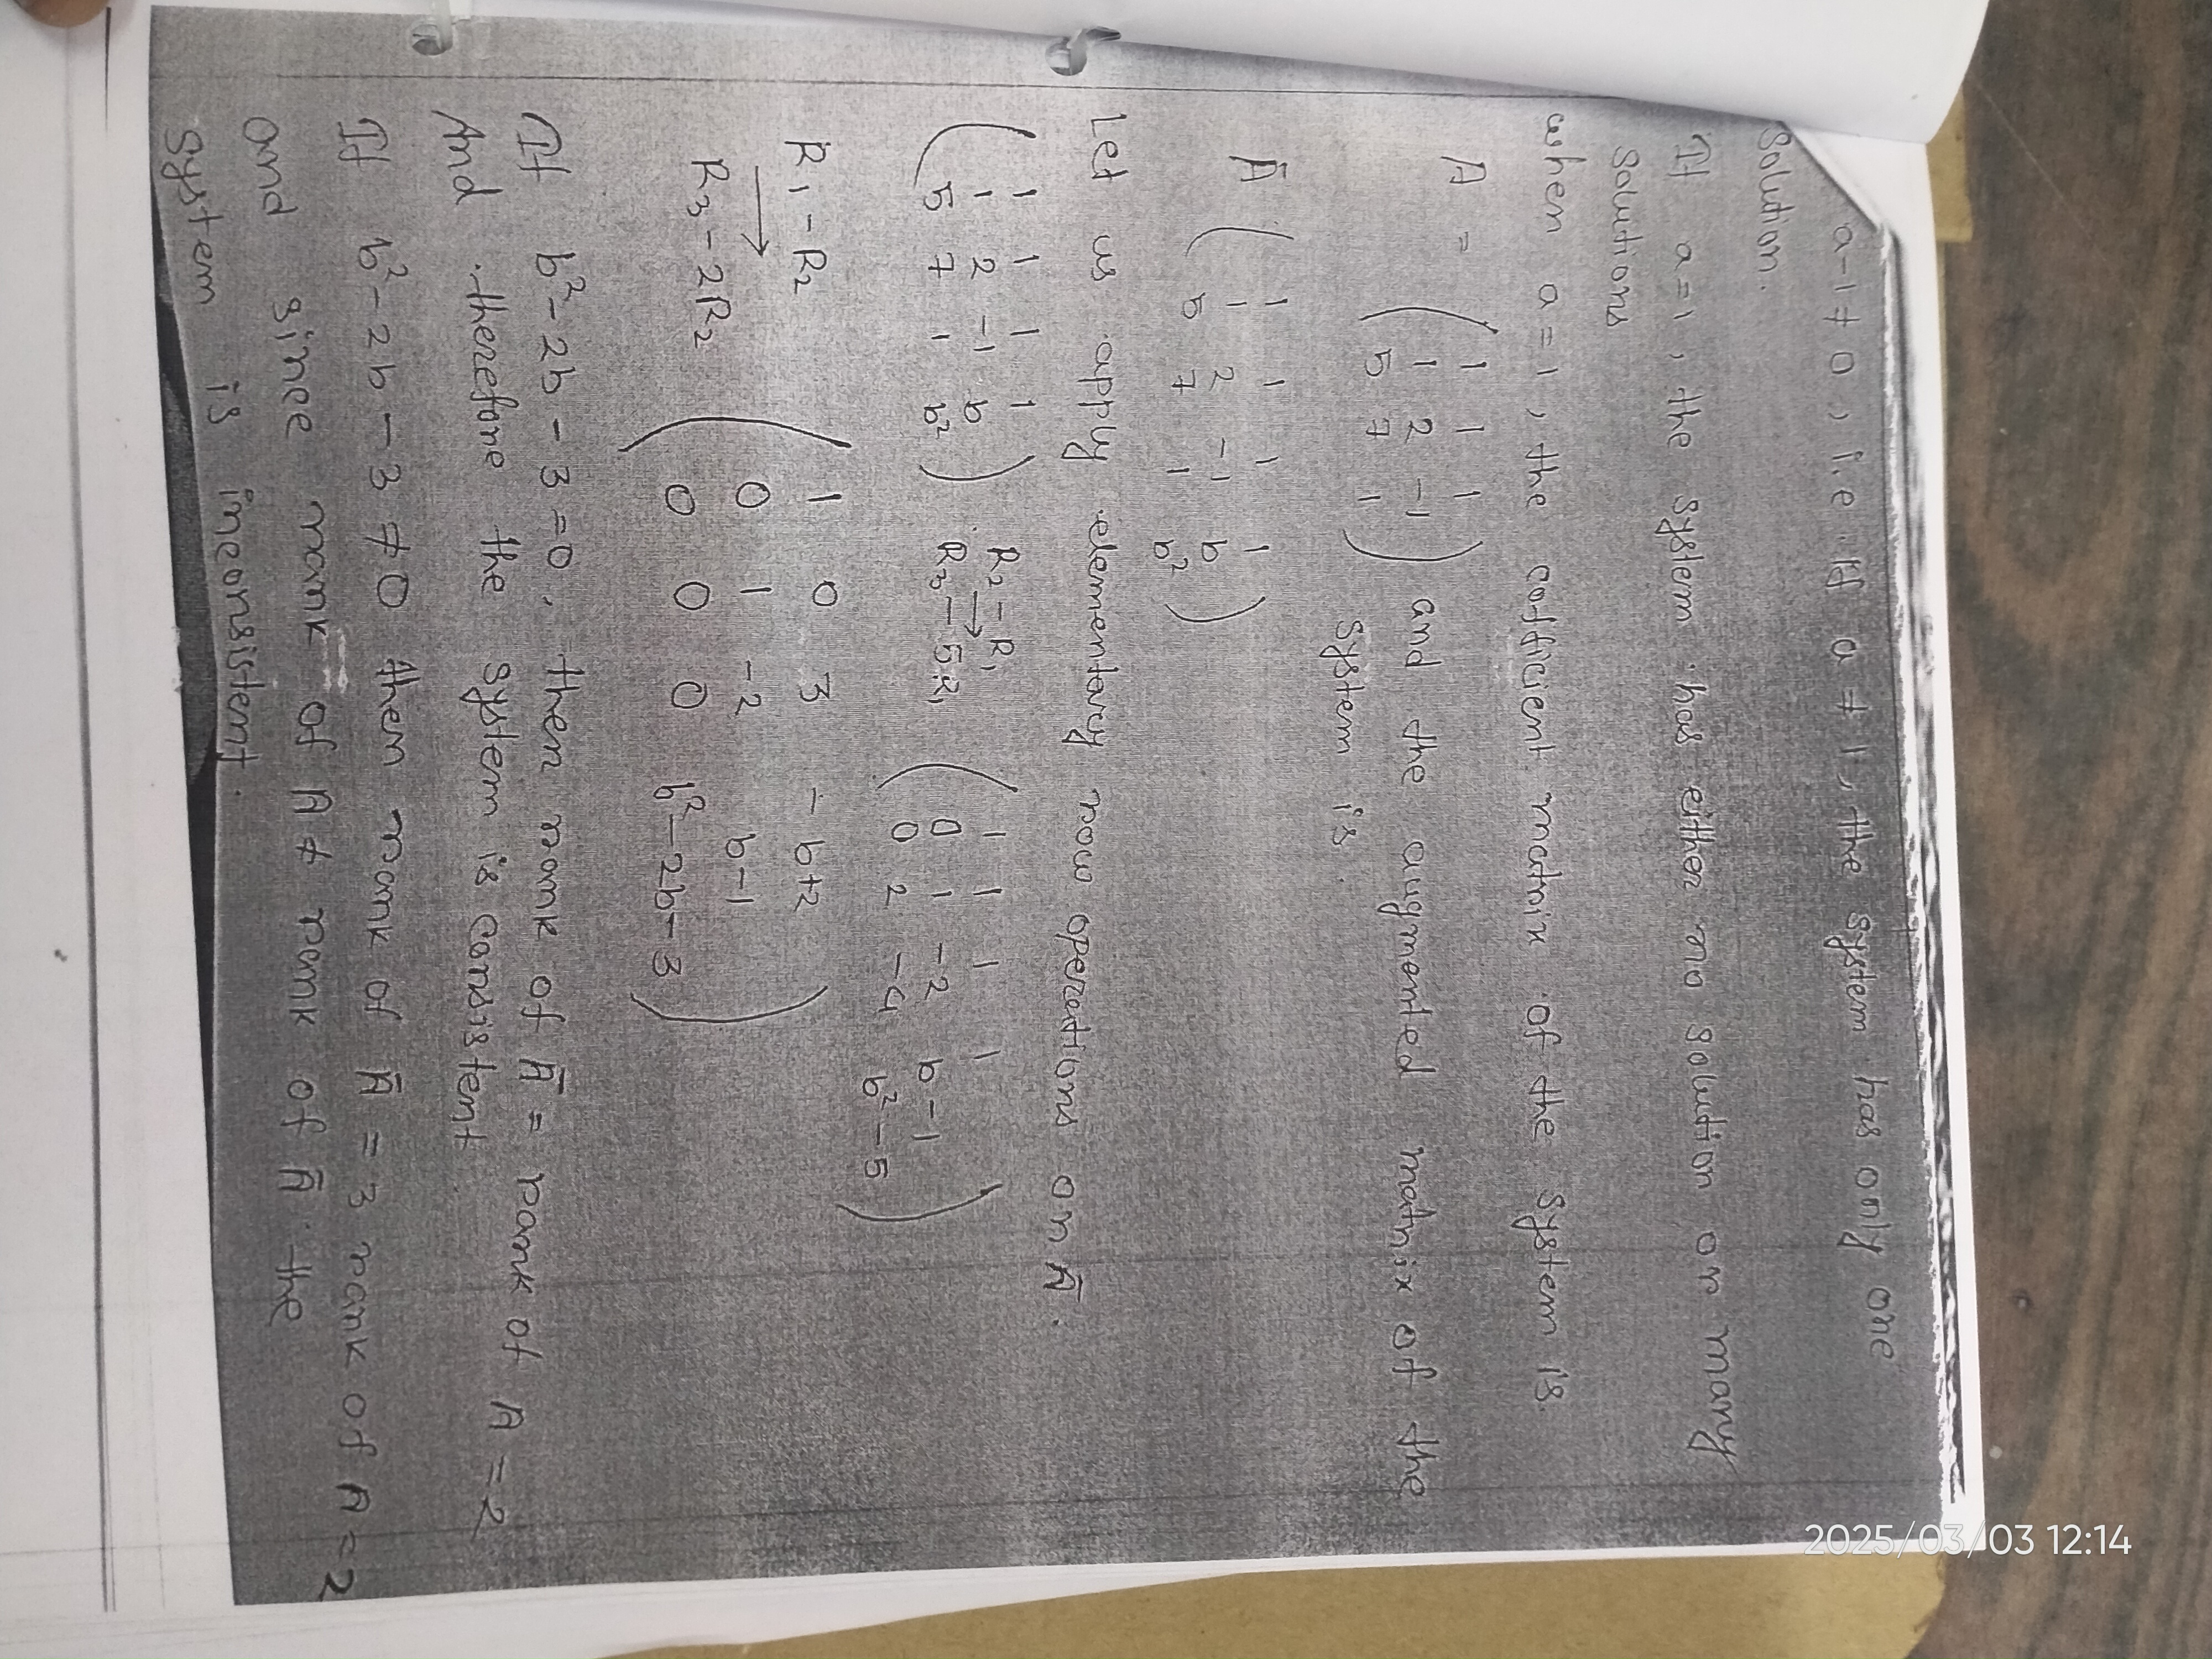 a-1 ≠ 0, i.e. if a ≠ 1, the system has only one
solution.
If a=1, the system has either no solution or many
solutions
when a=1, the cofficient matrix of the system is.
A = ( 1 1 1
1 2 -1
5 7 1 ) and the augmented matrix of the
system is.
Ā ( 1 1 1 1
1 2 -1 b
5 7 1 b² )
Let us apply elementary row operations on Ā.
( 1 1 1 1
1 2 -1 b
5 7 1 b² ) R₂-R₁ → R₃-5R₁ ( 1 1 1 1
0 1 -2 b-1
0 2 -4 b²-5 )
R₁-R₂ → R₃-2R₂ ( 1 0 3 -b+2
0 1 -2 b-1
0 0 0 b²-2b-3 )
If b²-2b-3=0, then rank of Ā = rank of A=2
And therefore the system is consistent.
If b²-2b-3 ≠ 0 then rank of Ā = 3 rank of A=2
and since rank of A ≠ rank of Ā the
system is inconsistent.
2025/03/03 12:14